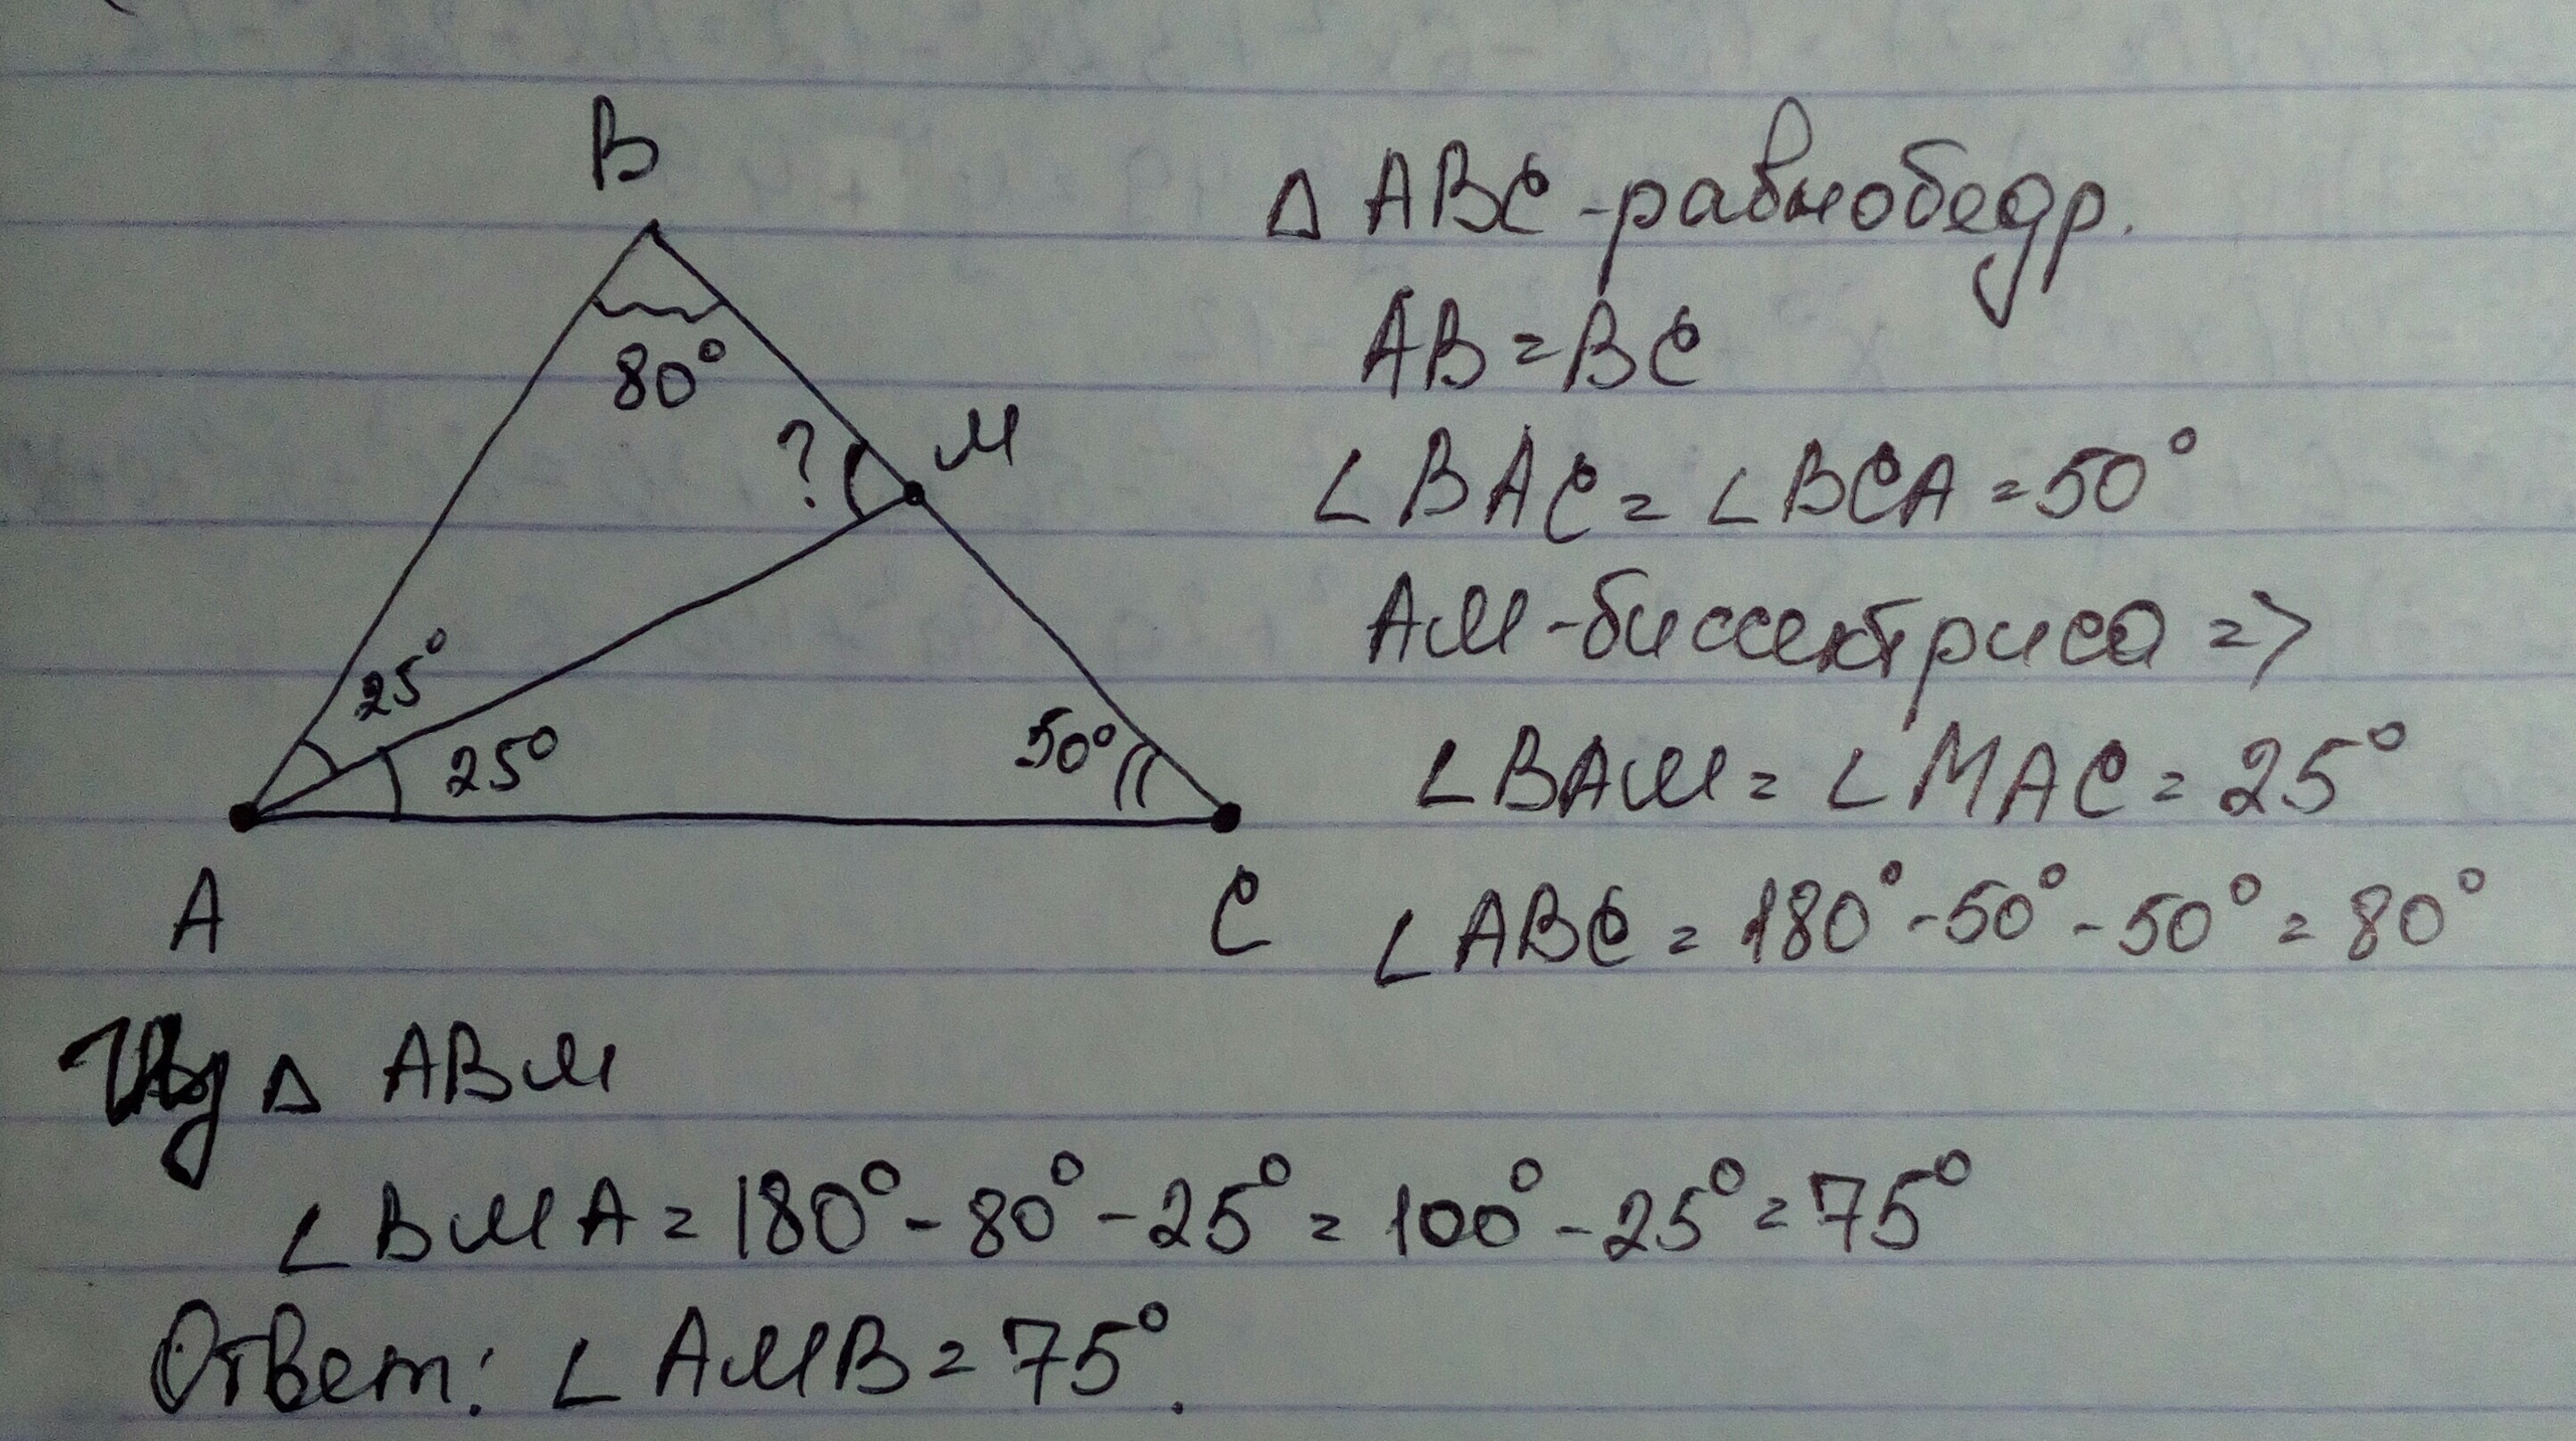 B
80°
?
M
25°
25°
50°
A
C
△ ABC - равнобедр.
AB = BC
∠BAC = ∠BCA = 50°
AM - биссектриса =>
∠BAM = ∠MAC = 25°
∠ABC = 180° - 50° - 50° = 80°
Из △ ABM
∠BMA = 180° - 80° - 25° = 100° - 25° = 75°
Ответ: ∠AMB = 75°.